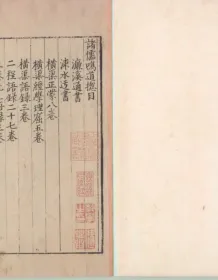 諸儒鳴道總目
濂溪通書
涑水迂書
橫渠正蒙八卷
橫渠經學理窟五卷
橫渠語錄三卷
二程語錄二十七卷